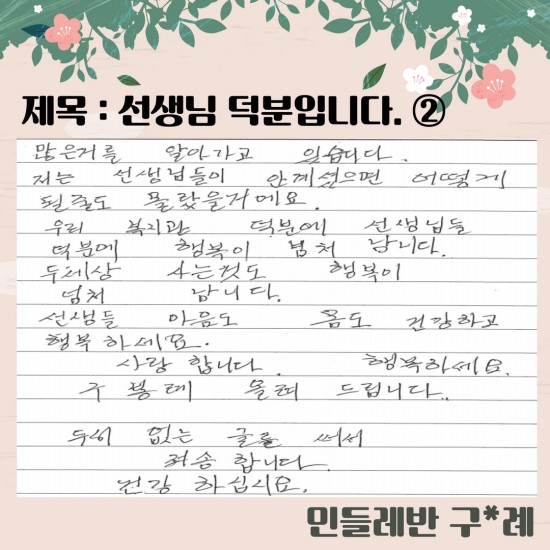 제목 : 선생님 덕분입니다. ②
많은거를 알아가고 있습니다.
저는 선생님들이 안계셨으면 어떻게
될줄도 몰랐을거에요.
우리 복지관 덕분에 선생님들
덕분에 행복이 넘처 납니다.
두세상 사는것도 행복이
넘처 납니다.
선생들 마음도 몸도 건강하고
행복하세요.
사랑 합니다. 행복하세요.
구봉례 올려 드립니다..
두서 없는 글을 써서
죄송 합니다.
건강 하십시요.
민들레반 구*례